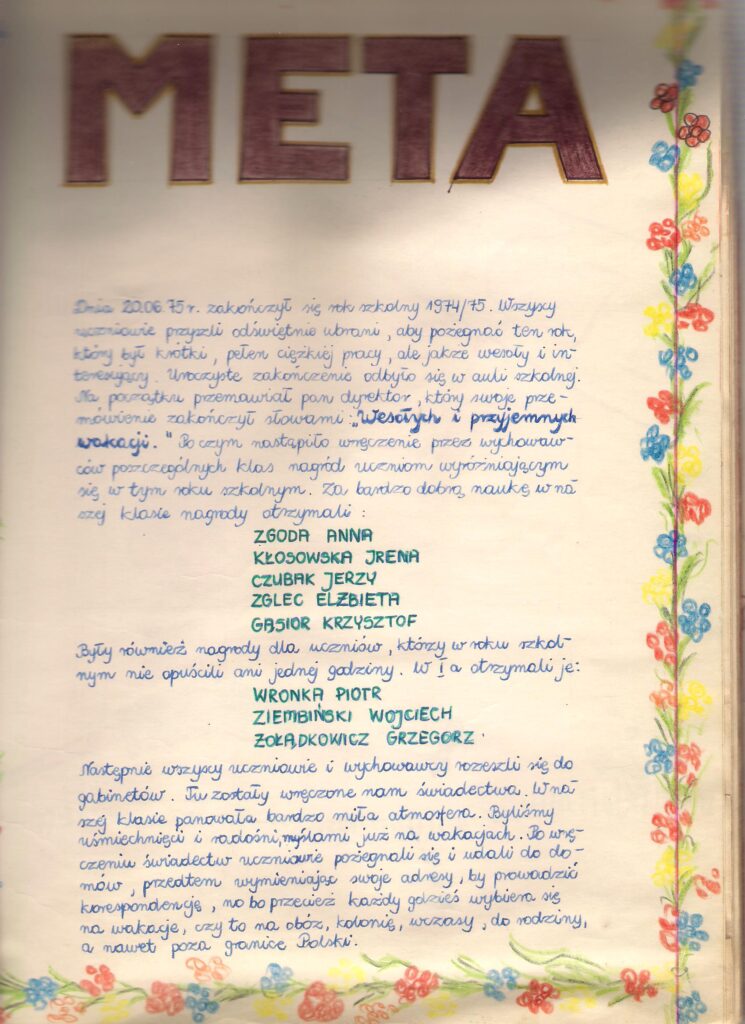 META
Dnia 20.06.75 r. zakończył się rok szkolny 1974/75. Wszyscy
uczniowie przyszli odświętnie ubrani, aby pożegnać ten rok,
który był krótki, pełen ciężkiej pracy, ale jakże wesoły i in-
teresujący. Uroczyste zakończenie odbyło się w auli szkolnej.
Na początku przemawiał pan dyrektor, który swoje prze-
mówienie zakończył słowami: „Wesołych i przyjemnych
wakacji." Po czym nastąpiło wręczenie przez wychowaw-
ców poszczególnych klas nagród uczniom wyróżniającym
się w tym roku szkolnym. Za bardzo dobrą naukę w na
szej klasie nagrody otrzymali:
ZGODA ANNA
KŁOSOWSKA IRENA
CZUBAK JERZY
ZGLEC ELŻBIETA
GĄSIOR KRZYSZTOF
Były również nagrody dla uczniów, którzy w roku szkol-
nym nie opuścili ani jednej godziny. W I a otrzymali je:
WRONKA PIOTR
ZIEMBIŃSKI WOJCIECH
ŻOŁĄDKOWICZ GRZEGORZ
Następnie wszyscy uczniowie i wychowawcy rozeszli się do
gabinetów. Tu zostały wręczone nam świadectwa. W na
szej klasie panowała bardzo miła atmosfera. Byliśmy
uśmiechnięci i radośni, myślami już na wakacjach. Po wrę-
czeniu świadectw uczniowie pożegnali się i udali do do-
mów, przedtem wymieniając swoje adresy, by prowadzić
korespondencję, no bo przecież każdy gdzieś wybiera się
na wakacje, czy to na obóz, kolonię, wczasy, do rodziny,
a nawet poza granice Polski.